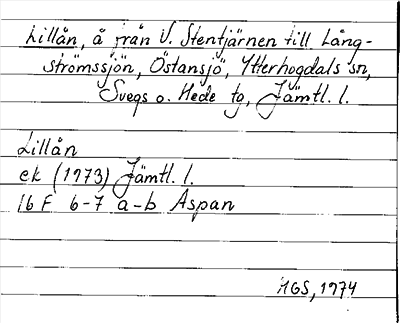 Lillån, å från V. Stentjärnen till Lång-
strömssjön, Östansjö, Ytterhogdals sn,
Svegs o. Hede tg, Jämtl. l.
Lillån
ek (1973) Jämtl. l.
16 F 6-7 a-b Aspan
MGS, 1974